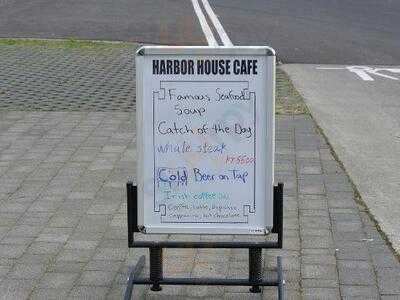 HARBOR HOUSE CAFE
Famous Seafood
Soup
Catch of the Day
whale steak
Cold Beer on Tap
Irish coffee
Coffee, Latte, Espresso
Cappuccino, hot chocolate